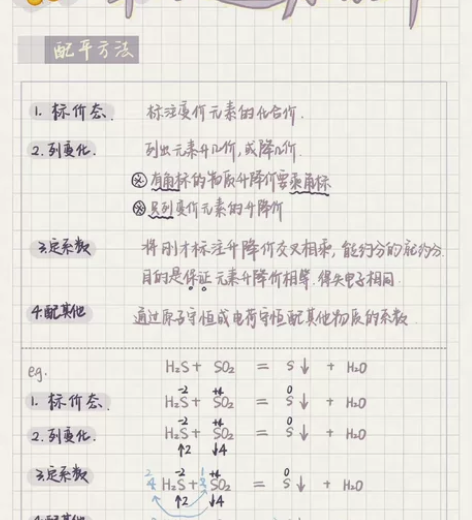 配平方法
1. 标价态. 标注变价元素的化合价.
2. 列变化. 列出元素升几价,或降几价.
※ 有角标的物质升降价要乘角标
※ 只列变价元素的升降价
3.定系数 将刚才标注升降价交叉相乘, 能约分的就约分.
目的是保证元素升降价相等. 得失电子相同.
4.配其他 通过原子守恒或电荷守恒配其他物质的系数.
eg. H₂S + SO₂ = S↓ + H₂O
-2 +4 0
1. 标价态. H₂S + SO₂ = S↓ + H₂O
-2 +4 0
2. 列变化. H₂S + SO₂ = S↓ + H₂O
↑2 ↓4
-2 +4 0
3.定系数 H₂S + SO₂ = S↓ + H₂O
↑2 ↓4